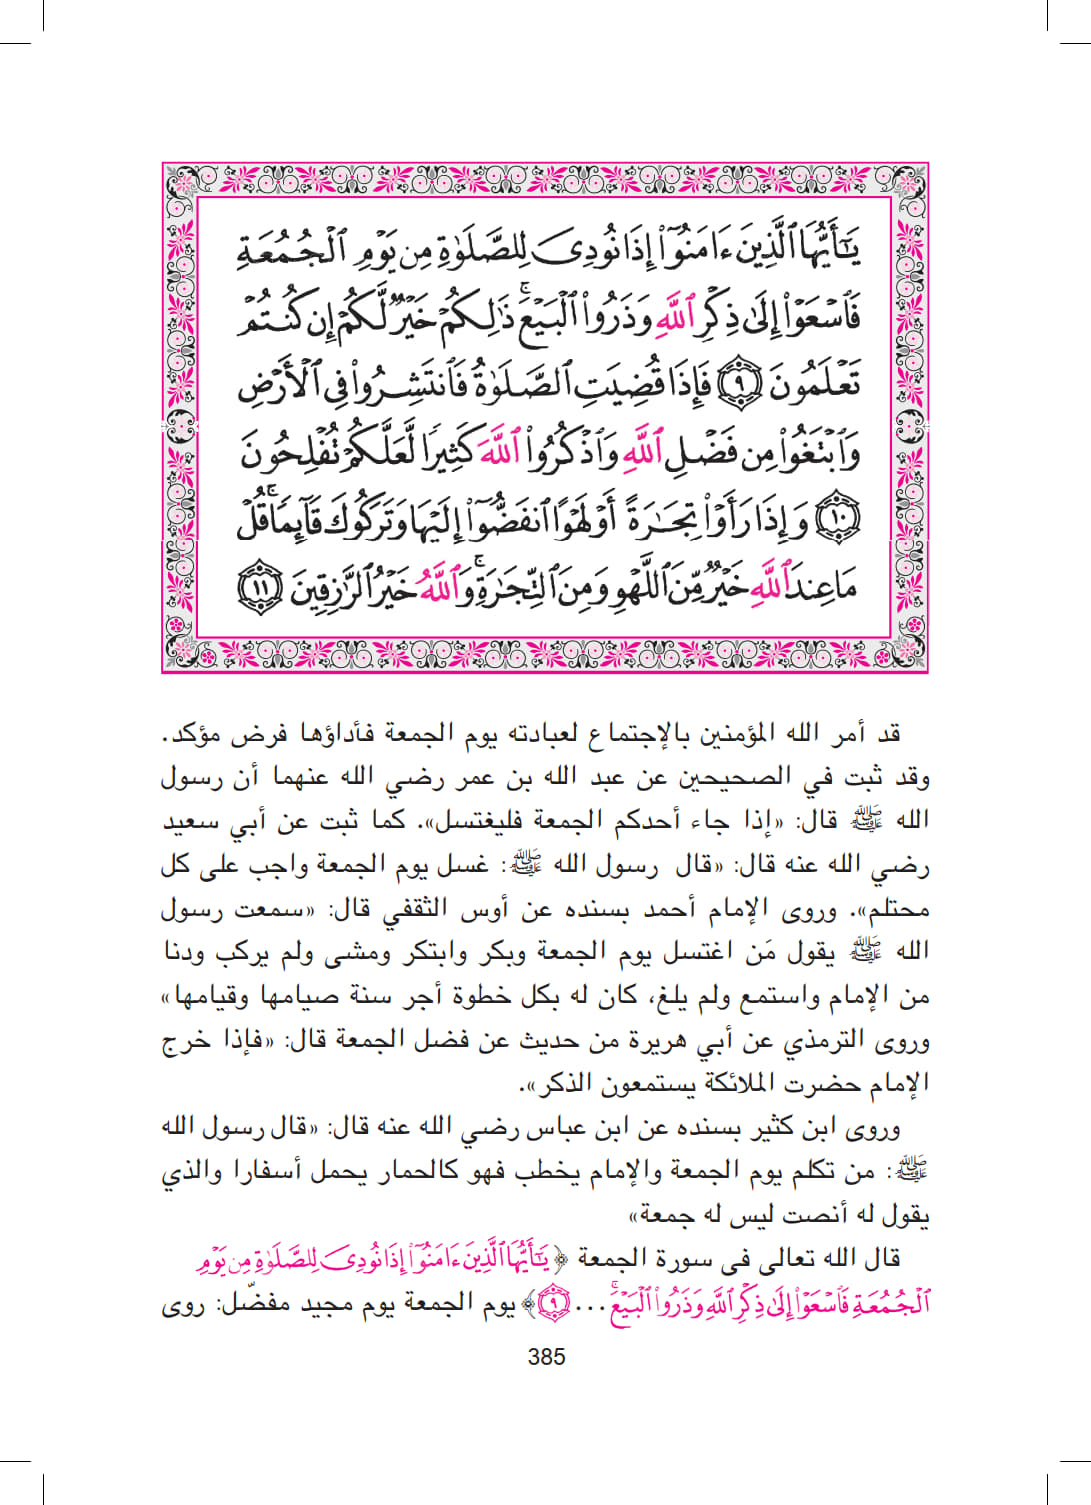 يَٰٓأَيُّهَا ٱلَّذِينَ ءَامَنُوٓا۟ إِذَا نُودِىَ لِلصَّلَوٰةِ مِن يَوْمِ ٱلْجُمُعَةِ
فَٱسْعَوْا۟ إِلَىٰ ذِكْرِ ٱللَّهِ وَذَرُوا۟ ٱلْبَيْعَ ۚ ذَٰلِكُمْ خَيْرٌ لَّكُمْ إِن كُنتُمْ
تَعْلَمُونَ ٩ فَإِذَا قُضِيَتِ ٱلصَّلَوٰةُ فَٱنتَشِرُوا۟ فِى ٱلْأَرْضِ
وَٱبْتَغُوا۟ مِن فَضْلِ ٱللَّهِ وَٱذْكُرُوا۟ ٱللَّهَ كَثِيرًا لَّعَلَّكُمْ تُفْلِحُونَ
١٠ وَإِذَا رَأَوْا۟ تِجَٰرَةً أَوْ لَهْوًا ٱنفَضُّوٓا۟ إِلَيْهَا وَتَرَكُوكَ قَآئِمًا ۚ قُلْ
مَا عِندَ ٱللَّهِ خَيْرٌ مِّنَ ٱللَّهْوِ وَمِنَ ٱلتِّجَٰرَةِ ۚ وَٱللَّهُ خَيْرُ ٱلرَّٰزِقِينَ ١١
قد أمر الله المؤمنين بالإجتماع لعبادته يوم الجمعة فأداؤها فرض مؤكد.
وقد ثبت في الصحيحين عن عبد الله بن عمر رضي الله عنهما أن رسول
الله ﷺ قال: «إذا جاء أحدكم الجمعة فليغتسل». كما ثبت عن أبي سعيد
رضي الله عنه قال: «قال رسول الله ﷺ: غسل يوم الجمعة واجب على كل
محتلم». وروى الإمام أحمد بسنده عن أوس الثقفي قال: «سمعت رسول
الله ﷺ يقول مَن اغتسل يوم الجمعة وبكر وابتكر ومشى ولم يركب ودنا
من الإمام واستمع ولم يلغ، كان له بكل خطوة أجر سنة صيامها وقيامها»
وروى الترمذي عن أبي هريرة من حديث عن فضل الجمعة قال: «فإذا خرج
الإمام حضرت الملائكة يستمعون الذكر».
وروى ابن كثير بسنده عن ابن عباس رضي الله عنه قال: «قال رسول الله
ﷺ: من تكلم يوم الجمعة والإمام يخطب فهو كالحمار يحمل أسفارا والذي
يقول له أنصت ليس له جمعة»
قال الله تعالى فى سورة الجمعة ﴿يَٰٓأَيُّهَا ٱلَّذِينَ ءَامَنُوٓا۟ إِذَا نُودِىَ لِلصَّلَوٰةِ مِن يَوْمِ
ٱلْجُمُعَةِ فَٱسْعَوْا۟ إِلَىٰ ذِكْرِ ٱللَّهِ وَذَرُوا۟ ٱلْبَيْعَ ۚ ... ٩﴾ يوم الجمعة يوم مجيد مفضّل: روى
385